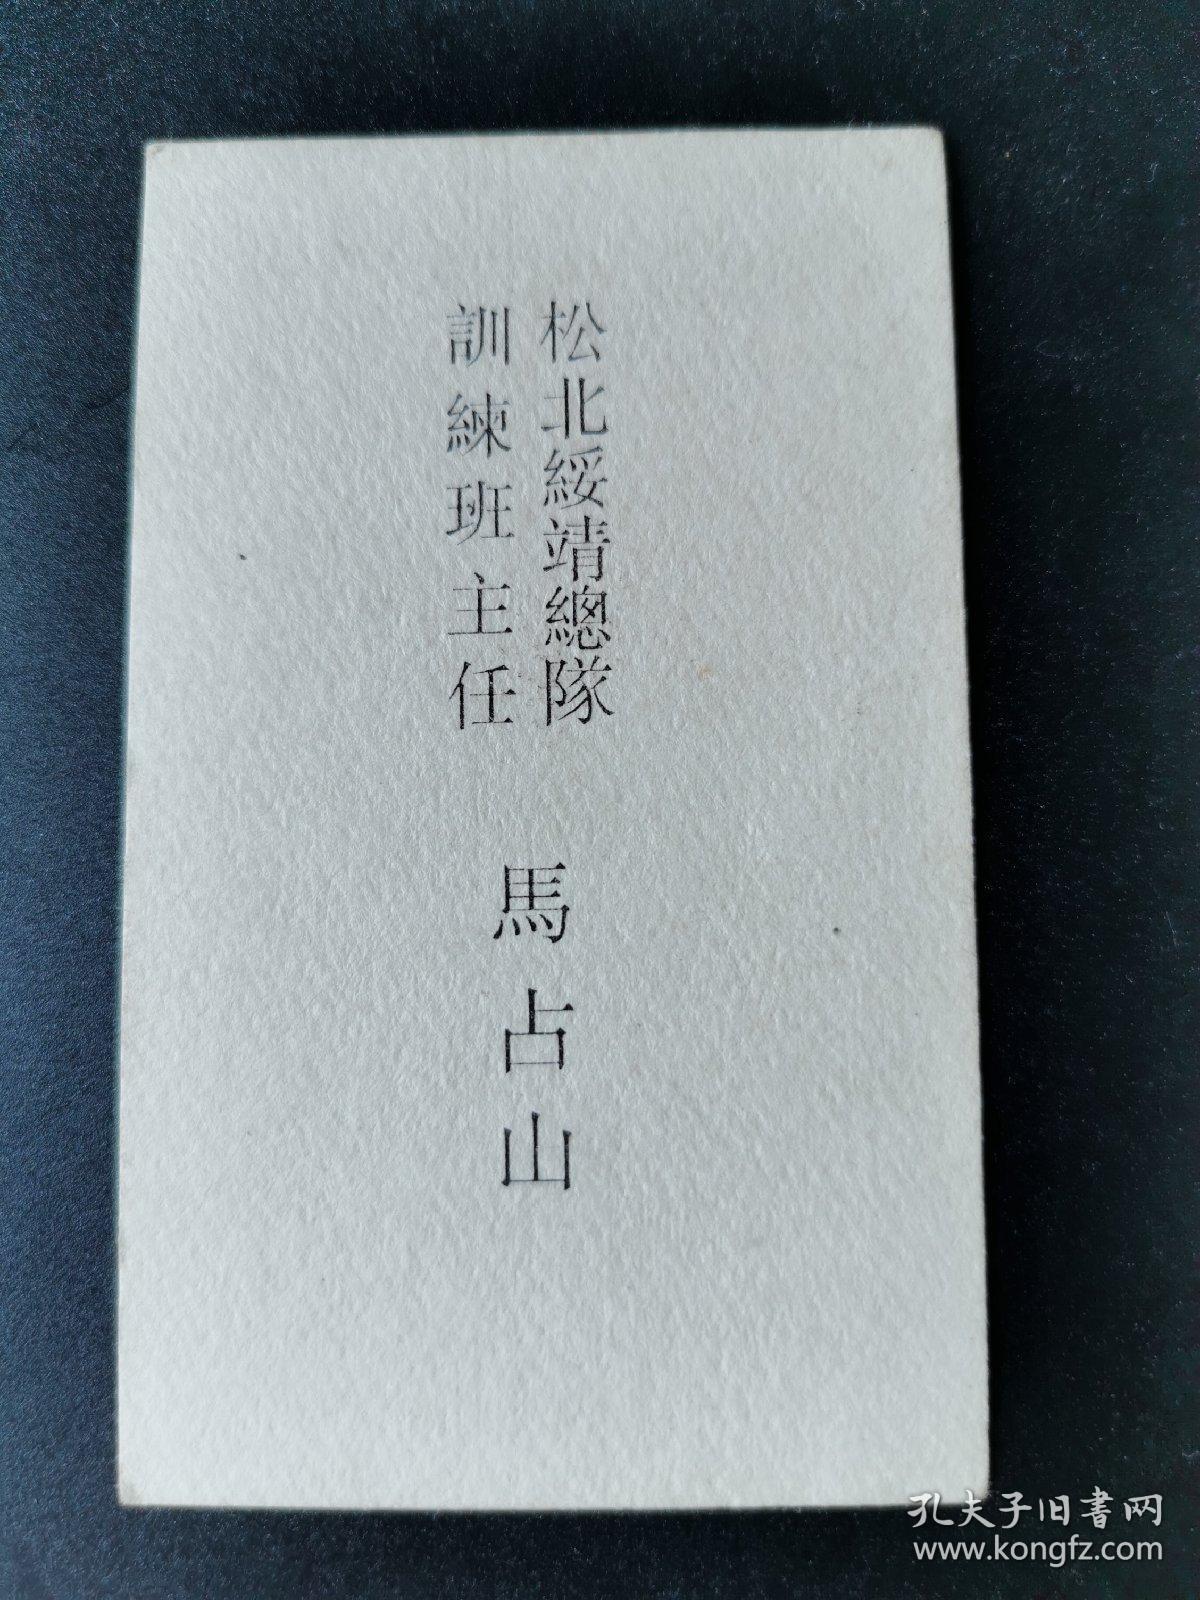 松北綏靖總隊
訓練班主任
馬占山
孔夫子旧書网
www.kongfz.com